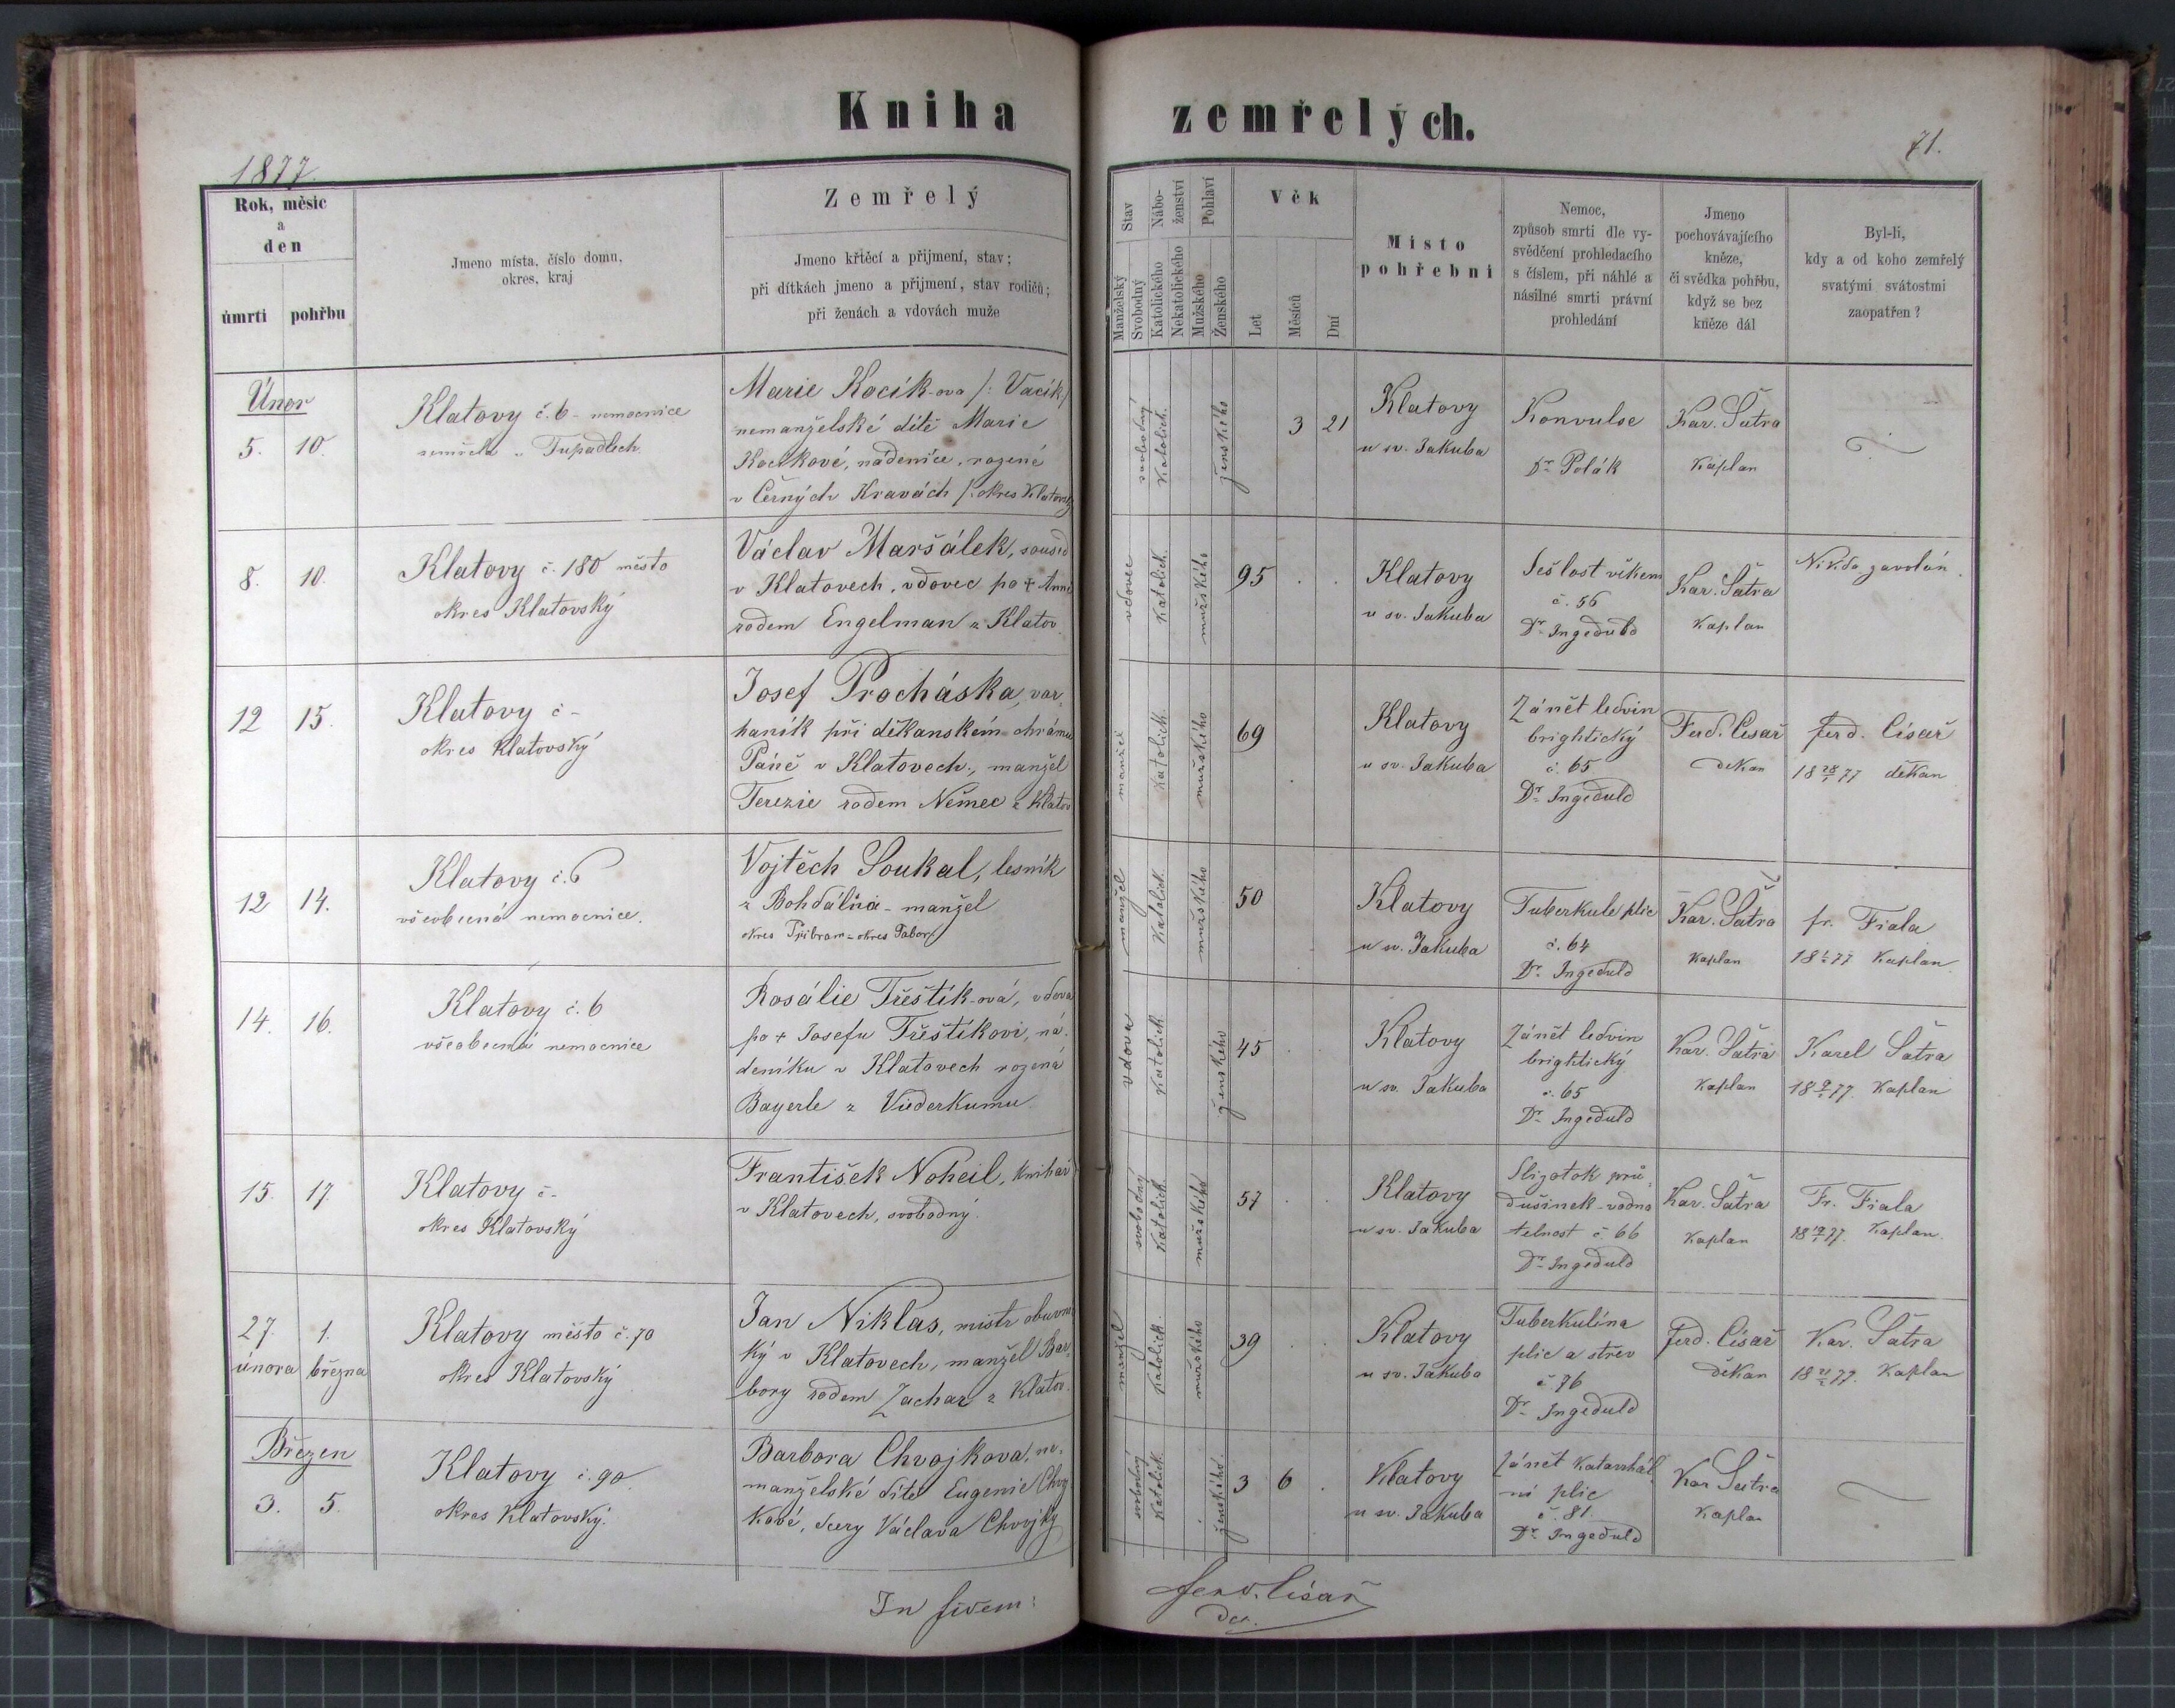 Kniha zemřelých.
1877.
71.
Rok, měsíc
a
den
úmrtí
pohřbu
Jmeno místa, číslo domu,
okres, kraj
Zemřelý
Jmeno křtěcí a přijmení, stav;
při dítkách jmeno a přijmení, stav rodičů;
při ženách a vdovách muže
Stav
Manželský
Svobodný
Nábo-
ženství
Katolického
Nekatolického
Pohlaví
Mužského
Ženského
Věk
Let
Měsíců
Dní
Místo
pohřební
Nemoc,
způsob smrti dle vy-
svědčení prohledacího
s číslem, při náhlé a
násilné smrti právní
prohledání
Jmeno
pochovávajícího
kněze,
či svědka pohřbu,
když se bez
kněze dál
Byl-li,
kdy a od koho zemřelý
svatými svátostmi
zaopatřen?
Únor
5. 10.
Klatovy č. 6 - nemocnice
zemřela v Tupadlech.
Marie Kocík-ova /: Vacík/
nemanželské dítě Marie
Kocíkové, nádenice, rozené
v Černých Kravách /: okres Klatovský
svobodný
Katolick.
ženského
3 21
Klatovy
u sv. Jakuba
Konvulse
Dr. Polák
Kar. Šatra
Kaplan
8. 10.
Klatovy č. 180 město
okres Klatovský
Václav Maršálek, soused
v Klatovech, vdovec po + Anně
rodem Engelman z Klatov.
vdovec
Katolick.
mužského
95
Klatovy
u sv. Jakuba
Sešlost věkem
č. 56
Dr. Ingeduld
Kar. Šatra
Kaplan
Nikdo zavolán.
12 15.
Klatovy č -
okres Klatovský
Josef Procháska, var-
haník při děkanském chrámu
Páně v Klatovech, manžel
Terezie rodem Němec z Klatov
manžel
Katolick.
mužského
69
Klatovy
u sv. Jakuba
Zánět ledvin
brightický
č. 65
Dr. Ingeduld
Ferd. Císař
děkan
Ferd. Císař
18 28/1 77 děkan
12 14.
Klatovy č. 6
všeobecná nemocnice.
Vojtěch Soukal, lesník
z Bohdálína - manžel
okres Příbram - okres Tabor/
manžel
Katolick.
mužského
50
Klatovy
u sv. Jakuba
Tuberkule plic
č. 64
Dr. Ingeduld
Kar. Šatra
Kaplan
fr. Fiala
Kaplan
14. 16.
Klatovy č. 6
všeobecná nemocnice
Rosálie Třeštík-ová, vdova
po + Josefu Třeštíkovi, ná-
deníku v Klatovech rozená
Bayerle z
vdova
Katolick
ženského
45
Klatovy
u sv. Jakuba
Zánět ledvin
brightický
č. 65
Dr. Ingeduld
Kar. Šatra
Kaplan
Karel Šatra
Kaplan
15. 17
Klatovy č. -
okres Klatovský
František Noheil, knihař
v Klatovech, svobodný.
svobodný
Katolick.
mužského
57
Klatovy
u sv. Jakuba
Slizotok prů-
dušinek - vodna-
telnost č 66
Dr. Ingeduld
Kar. Šatra
Kaplan
Fr. Fiala
Kaplan.
27. 1.
února března
Klatovy město č. 70
okres Klatovský
Jan Niklas, mistr obuvni-
ký v Klatovech, manžel Bar-
bory rodem Zachar z Klatov.
manžel
Katolick.
mužského
39
Klatovy
u sv. Jakuba
Tuberkulína
plic a střev
č. 76
Dr. Ingeduld
Ferd. Císař
děkan
Kar. Šatra
Kaplan
Březen
3. 5.
Klatovy č. 90.
okres Klatovský.
Barbora Chvojkova, ne-
manželské dítě Eugenie Chvoj
kové, dcery Václava Chvojky
svobodný
Katolick.
ženského.
3 6
Klatovy
u sv. Jakuba
Zánět Katarrhál
ní plic
č. 81.
Dr. Ingeduld
Kar Šatra
Kaplan
In fidem: Ferd. Císař